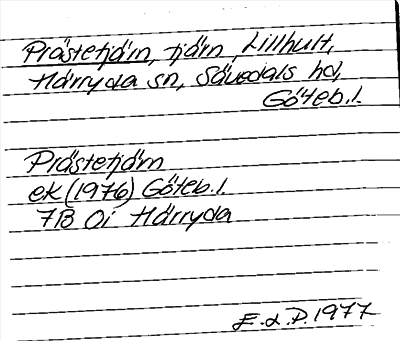 Prästetjärn, tjärn, Lillhult,
Härryda sn, Sävedals hd,
Göteb.l.
Prästetjärn
ek (1976) Göteb.l.
7B 0i Härryda
E.d.P. 1977